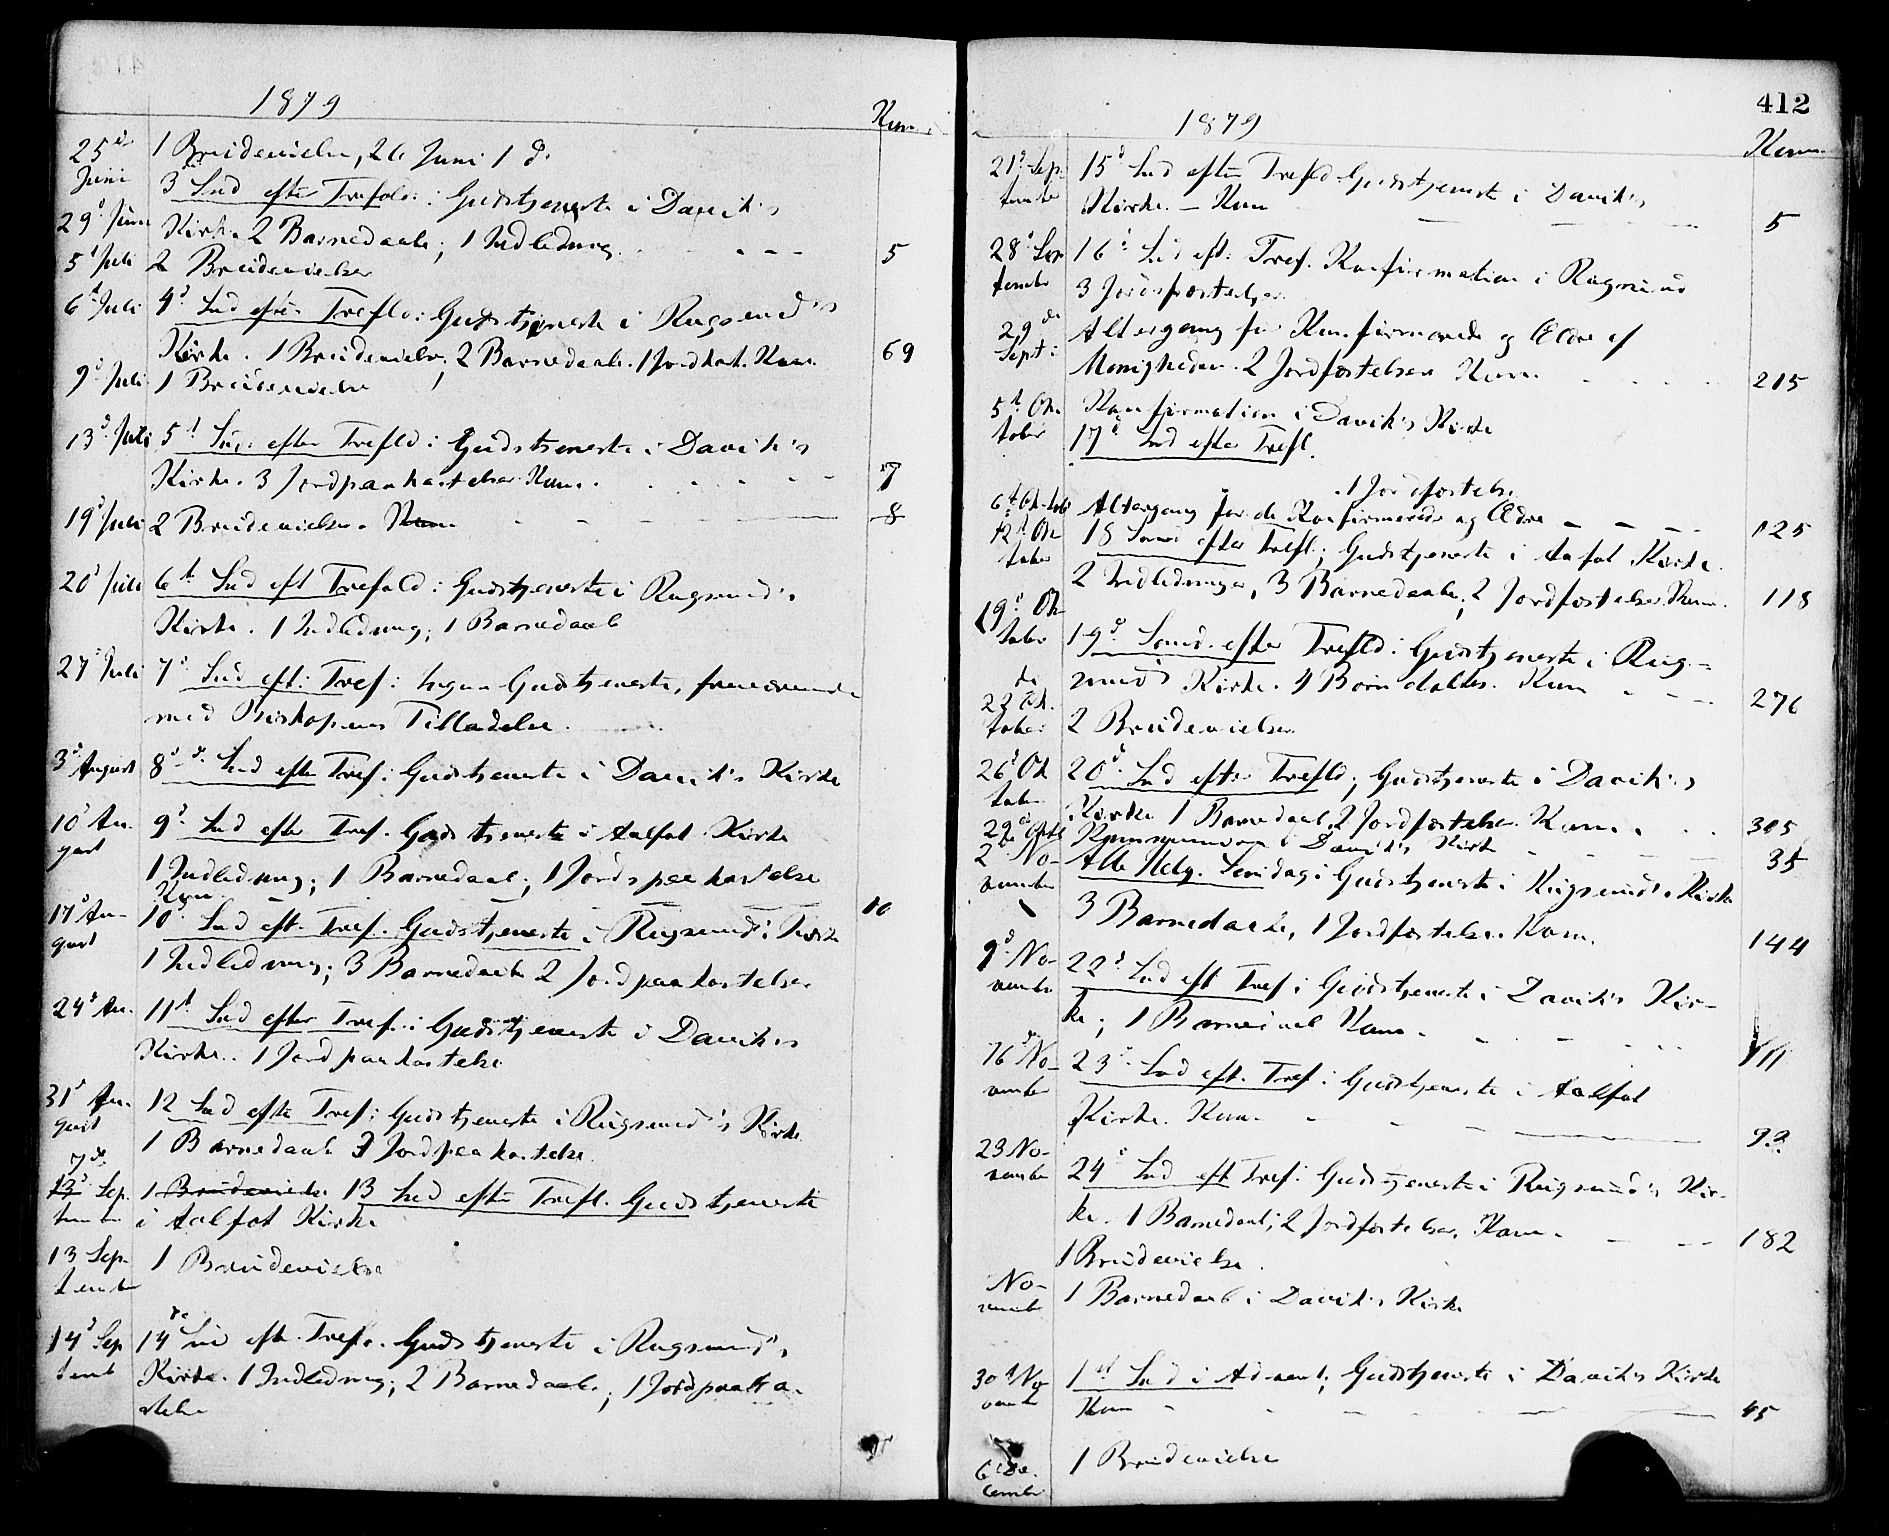 1879
Kom.
25de Juni
1 Brudevielse, 26 Juni 1 d.
29d Juni
3d Snd efter Trefold: Gudstjeneste i Davik's
Kirke. 2 Barnedaab; 1 Indledning. - - - 5
5t Juli
2 Brudevielser
6t Juli
4d Snd efter Trefld: Gudstjeneste i Rugsund's
Kirke. 1 Brudevielse, 2 Barnedaab. 1 Jordkast. Kom. 69
9d Juli
1 Brudevielse
13d Juli
5t Snd: efter Trefld: Gudstjeneste i Davik's
Kirke. 3 Jordpaakastelser Kom. - - - 7
19d Juli
2 Brudevielser. Kom. - - - 8
20d Juli
6t Snd eft Trefold: Gudstjeneste i Rugsund's
Kirke. 1 Indledning; 1 Barnedaab
27d Juli
7d Snd eft: Tref: Ingen Gudstjeneste, fraværende
med Biskopens Tilladelse.
3d August
8d Snd efter Tref: Gudstjeneste i Davik's Kirke
10d August
9d Snd efter Tref. Gudstjeneste i Aalfot Kirke
1 Indledning; 1 Barnedaab; 1 Jordspaakastelse
Kom. - - - 10
17d August
10d Snd eft. Tref. Gudstjeneste i Rugsunds Kirke
1 Indledning; 3 Barnedaab 2 Jordpaakastelser
24d Au.
11t Snd efter Tref. i Gudstjeneste i Davik's
Kirke. 1 Jordpaakastelse
31d August
12 Snd efter Tref: Gudstjeneste i Rugsund's Kirke
1 Barnedaab 3 Jordpaakastelse.
7de
13d September
1 Brudevielse 13 Snd efter Trefl. Gudstjeneste
i Aalfot Kirke
13 September
1 Brudevielse
14d Septemb
14de Snd eft. Tref. Gudstjeneste i Rugsund's
Kirke. 1 Indledning; 2 Barnedaab; 1 Jordpaaka-
stelse
412
1879
Kom.
21d September
15d Snd efter Trefld Gudstjenest i Davik's
Kirke. - Kom - - - 5
28d September
16d Snd eft. Tref. Konfirmation i Rugsund
3 Jordfæstelser.
29de Sept:
Altergang for Konfirmerede og Ældre af
Menigheden. 2 Jordfæstelser Kom. - - - 215
5t Oktober
Konfirmation i Davik's Kirke
17d Snd efter Trefl.
1 Jordfæstelse
6t Oktob
Altergang for de Konfirmerede og Ældre - - - 125
12t Oktober
18 Sønd efter Trefl; Gudstjeneste i Aafot Kirke.
2 Indledninger, 3 Barnedaab; 2 Jordfæstelser. Kom. 118
19d Oktober
19d Sønd. efter Trefld: Gudstjeneste i Rug-
sund's Kirke. 4 Børn døbtes. Kom - - - 276
22de Oktober
2 Brudevielser
26d Oktober
20d Snd efter Trefld; Gudstjeneste i Davik's
Kirke 1 Barnedaab, 2 Jordfæstelser. Kom. - - 305
29de Oktb
i Davik's Kirke - - - 35
2 November
Alle Helg. Søndag: Gudstjeneste i Rugsund's Kirke
3 Barnedaab, 1 Jordfæstelse. Kom. 144
9d November
22d Snd eft Tref: Gudstjeneste i Davik's Kir-
ke; 1 Barnedaab Kom. - - - 111
16d November
23d Snd eft. Tref: Gudstjeneste i Aalfot
Kirke. Kom. - - -
23 November
24d Snd eft Tref: Gudstjeneste i Rugsund's Kir-
ke. 1 Barnedaab; 2 Jordfæstelser. Kom. - - - 182
1 Brudevielse.
November
1 Barnedaab i Davik's Kirke
30d November
1st Snd i Advent; Gudstjeneste i Davik's Kirke
Kom - - - 45
6 December
1 Brudevielse